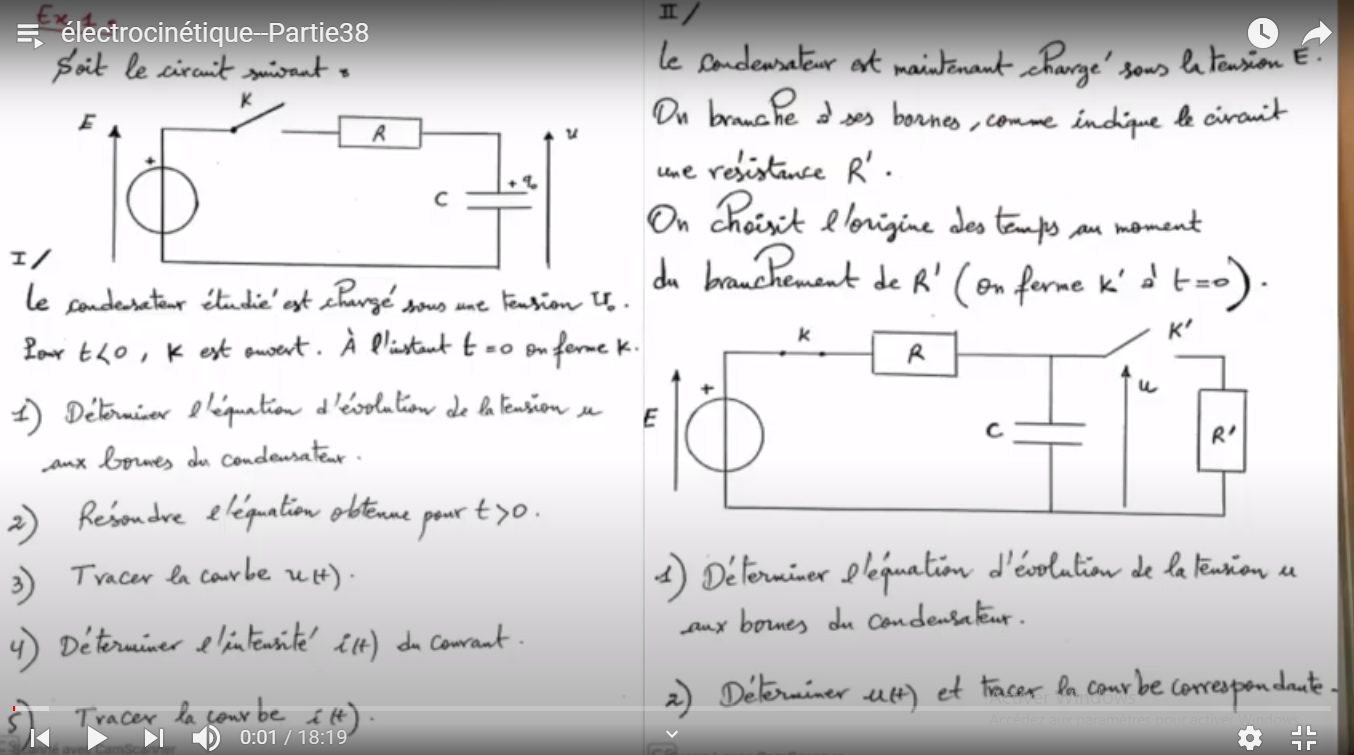 Ex 1 :
électrocinétique--Partie38
Soit le circuit suivant :
K
E
R
u
+
+ q
C
I /
Le condensateur étudié est chargé sous une tension U₀.
Pour t<0, K est ouvert. À l'instant t=0 on ferme K.
1) Déterminer l'équation d'évolution de la tension u
aux bornes du condensateur.
2) Résoudre l'équation obtenue pour t>0.
3) Tracer la courbe u(t).
4) Déterminer l'intensité i(t) du courant.
5) Tracer la courbe i(t).
0:01 / 18:19
II /
Le condensateur est maintenant chargé sous la tension E.
On branche à ses bornes, comme indique le circuit
une résistance R'.
On choisit l'origine des temps au moment
du branchement de R' (on ferme K' à t=0).
K
K'
R
+
u
E
C
R'
1) Déterminer l'équation d'évolution de la tension u
aux bornes du condensateur.
2) Déterminer u(t) et tracer la courbe correspondante.
Activer Windows
Accédez aux paramètres pour activer Windows
CamScanner